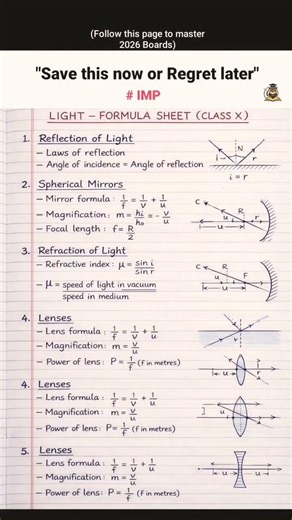 (Follow this page to master
2026 Boards)
"Save this now or Regret later"
# IMP
LIGHT – FORMULA SHEET (CLASS X)
1. Reflection of Light
– Laws of reflection
– Angle of incidence = Angle of reflection
N
i
r
i = r
2. Spherical Mirrors
– Mirror formula: 1/f = 1/v + 1/u
– Magnification: m = hi/ho = - v/u
– Focal length: f = R/2
C
u
R
u
3. Refraction of Light
– Refractive index: μ = sin i/sin r
– μ = speed of light in vacuum/speed in medium
C
R
u
F
u
4. Lenses
– Lens formula: 1/f = 1/v + 1/u
– Magnification: m = v/u
– Power of lens: P = 1/f (f in metres)
v
u
r
4. Lenses
– Lens formula: 1/f = 1/v + 1/u
– Magnification: m = v/u
– Power of lens: P = 1/f (f in metres)
u
r
5. Lenses
– Lens formula: 1/f = 1/v + 1/u
– Magnification: m = v/u
– Power of lens: P = 1/f (f in metres)
u